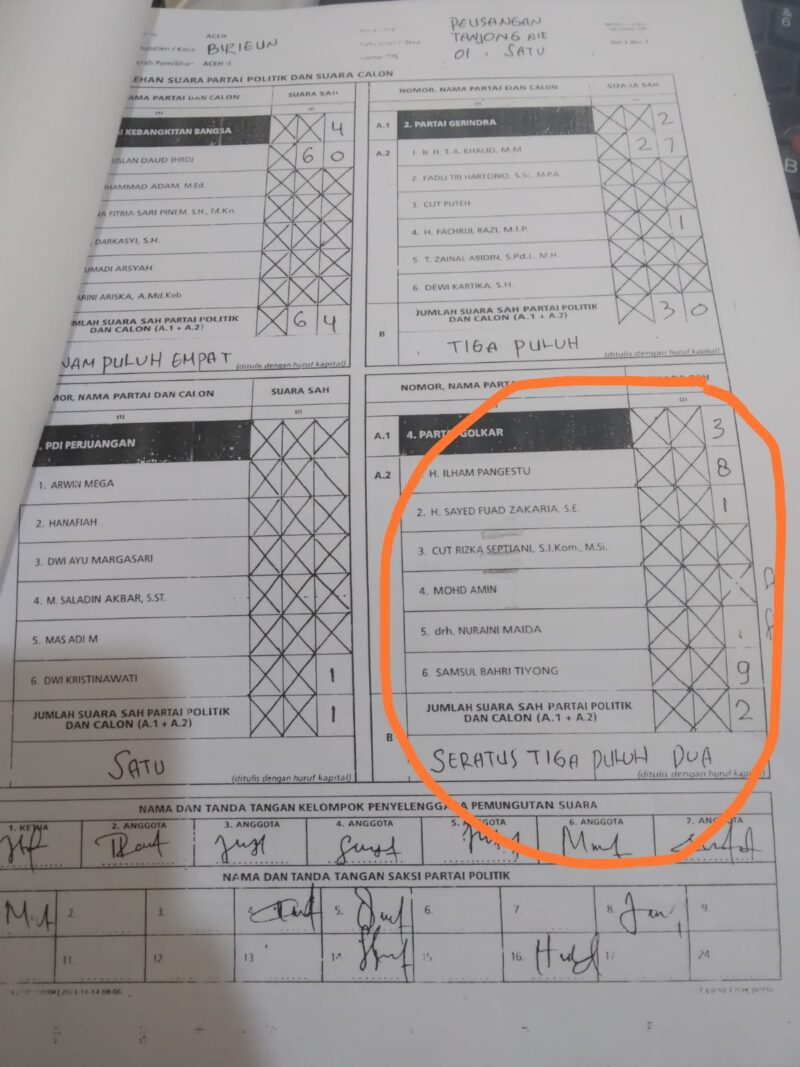 ACEH
BIRIEUN
ACEH II
PEUSANGAN
TANJONG NIE
01 . SATU
EHAN SUARA PARTAI POLITIK DAN SUARA CALON
AMA PARTAI DAN CALON
SUARA SAH
KEBANGKITAN BANGSA
4
USLAN DAUD (HRD)
6 0
HAMMAD ADAM, M.Ed
FITRIA SARI PINEM, S.H., M.Kn.
DARKASYI, S.H.
UMADI ARSYAH
ARINI ARISKA, A.Md.Keb
MLAH SUARA SAH PARTAI POLITIK
DAN CALON (A.1 + A.2)
6 4
NAM PULUH EMPAT
(ditulis dengan huruf kapital)
NOMOR, NAMA PARTAI DAN CALON
SUARA SAH
A.1
2. PARTAI GERINDRA
2
A.2
1. Ir. H. T. A. KHALID, M.M.
2 7
2. FADLI TRI HARTONO, S.Si., M.PA.
3. CUT PUTEH
4. H. FACHRUL RAZI, M.I.P.
1
5. T. ZAINAL ABIDIN, S.Pd.I., M.H.
6. DEWI KARTIKA, S.H.
B
JUMLAH SUARA SAH PARTAI POLITIK
DAN CALON (A.1 + A.2)
3 0
TIGA PULUH
(ditulis dengan huruf kapital)
MOR, NAMA PARTAI DAN CALON
SUARA SAH
(1)
(2)
PDI PERJUANGAN
1. ARWIN MEGA
2. HANAFIAH
3. DWI AYU MARGASARI
4. M. SALADIN AKBAR, S.ST.
5. MAS ADI M
6. DWI KRISTINAWATI
1
JUMLAH SUARA SAH PARTAI POLITIK
DAN CALON (A.1 + A.2)
1
SATU
(ditulis dengan huruf kapital)
NOMOR, NAMA PART
SUARA SAH
(2)
A.1
4. PARTAI GOLKAR
3
A.2
H. ILHAM PANGESTU
8
2. H. SAYED FUAD ZAKARIA, S.E.
1
3. CUT RIZKA SEPTIANI, S.I.Kom., M.Si.
4. MOHD AMIN
5. drh. NURAINI MAIDA
6. SAMSUL BAHRI TIYONG
9
B
JUMLAH SUARA SAH PARTAI POLITIK
DAN CALON (A.1 + A.2)
2
SERATUS TIGA PULUH DUA
(ditulis dengan huruf kapital)
NAMA DAN TANDA TANGAN KELOMPOK PENYELENGGARA PEMUNGUTAN SUARA
1. KETUA
2. ANGGOTA
3. ANGGOTA
4. ANGGOTA
5. ANGGOTA
6. ANGGOTA
7. ANGGOTA
NAMA DAN TANDA TANGAN SAKSI PARTAI POLITIK
2.
3.
4.
5.
6.
7
8.
9.
11
12
13
14
15
16.
17